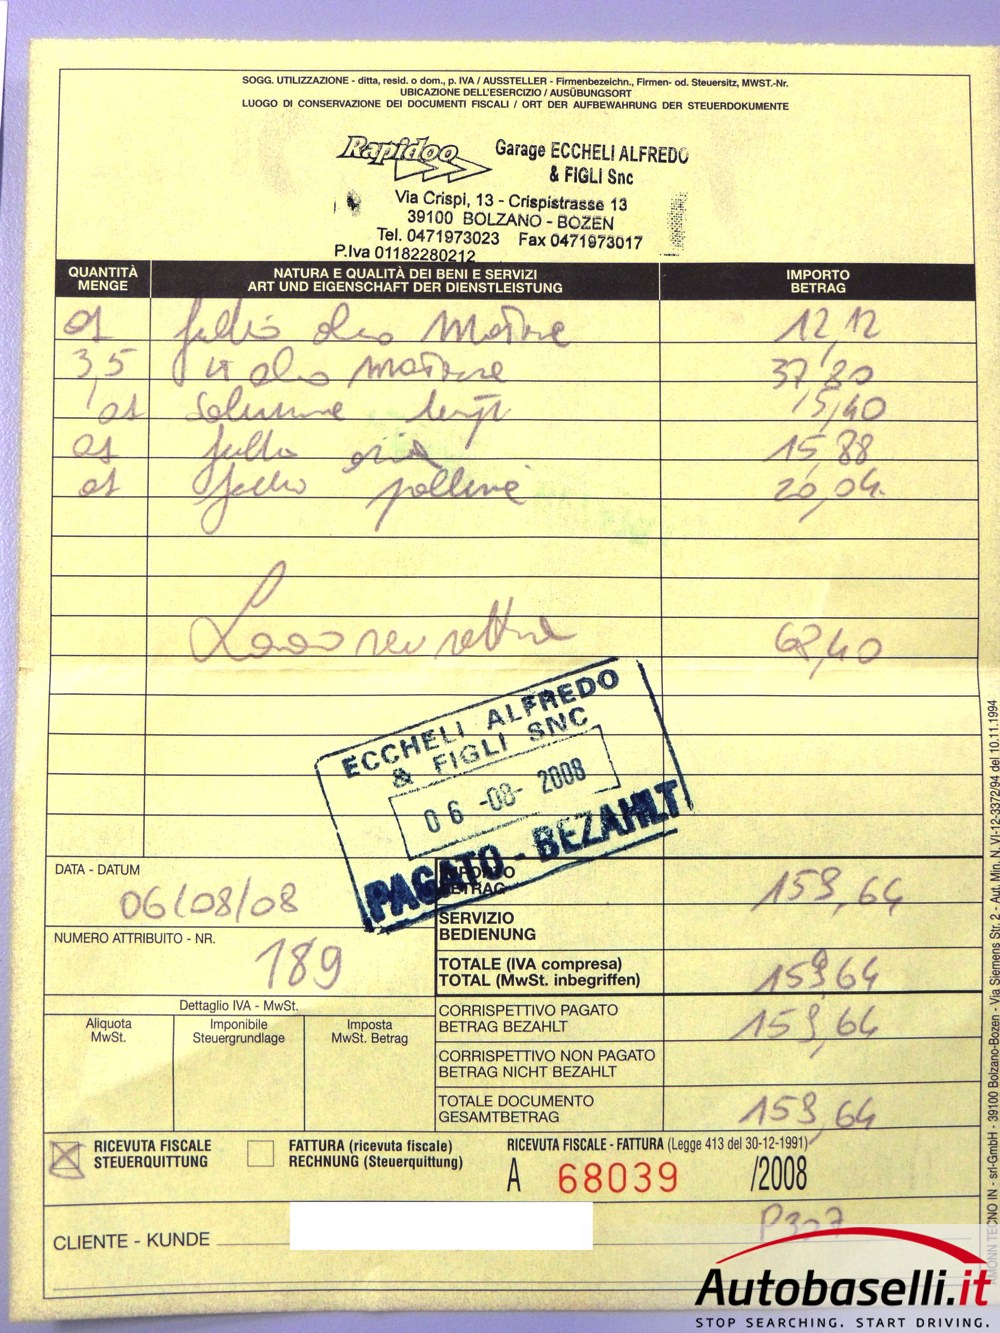 SOGG. UTILIZZAZIONE - ditta, resid. o dom., p. IVA / AUSSTELLER - Firmenbezeichn., Firmen- od. Steuersitz, MWST.-Nr.
UBICAZIONE DELL'ESERCIZIO / AUSÜBUNGSORT
LUOGO DI CONSERVAZIONE DEI DOCUMENTI FISCALI / ORT DER AUFBEWAHRUNG DER STEUERDOKUMENTE
Rapidoo Garage ECCHELI ALFREDO
& FIGLI Snc
Via Crispi, 13 - Crispistrasse 13
39100 BOLZANO - BOZEN
Tel. 0471973023 Fax 0471973017
P.Iva 01182280212
QUANTITÀ NATURA E QUALITÀ DEI BENI E SERVIZI IMPORTO
MENGE ART UND EIGENSCHAFT DER DIENSTLEISTUNG BETRAG
01 olio motore 12,12
3,5 olio motore 37,80
01 15,40
01 15,88
01 20,04
62,40
ECCHELI ALFREDO
& FIGLI SNC
06-08-2008
PAGATO - BEZAHLT
DATA - DATUM
06/08/08
IMPORTO
BETRAG 159,64
SERVIZIO
BEDIENUNG
NUMERO ATTRIBUITO - NR.
189
TOTALE (IVA compresa)
TOTAL (MwSt. inbegriffen) 159,64
Dettaglio IVA - MwSt.
Aliquota Imponibile Imposta
MwSt. Steuergrundlage MwSt. Betrag
CORRISPETTIVO PAGATO
BETRAG BEZAHLT 159,64
CORRISPETTIVO NON PAGATO
BETRAG NICHT BEZAHLT
TOTALE DOCUMENTO
GESAMTBETRAG 159,64
RICEVUTA FISCALE
STEUERQUITTUNG
FATTURA (ricevuta fiscale)
RECHNUNG (Steuerquittung)
RICEVUTA FISCALE - FATTURA (Legge 413 del 30-12-1991)
A 68039 /2008
P307
CLIENTE - KUNDE
TECNO IN - srl-GmbH - 39100 Bolzano-Bozen - Via Siemens Str. 2 - Aut. Min. N. VI-12-3372/94 del 10.11.1994
Autobaselli.it
STOP SEARCHING. START DRIVING.